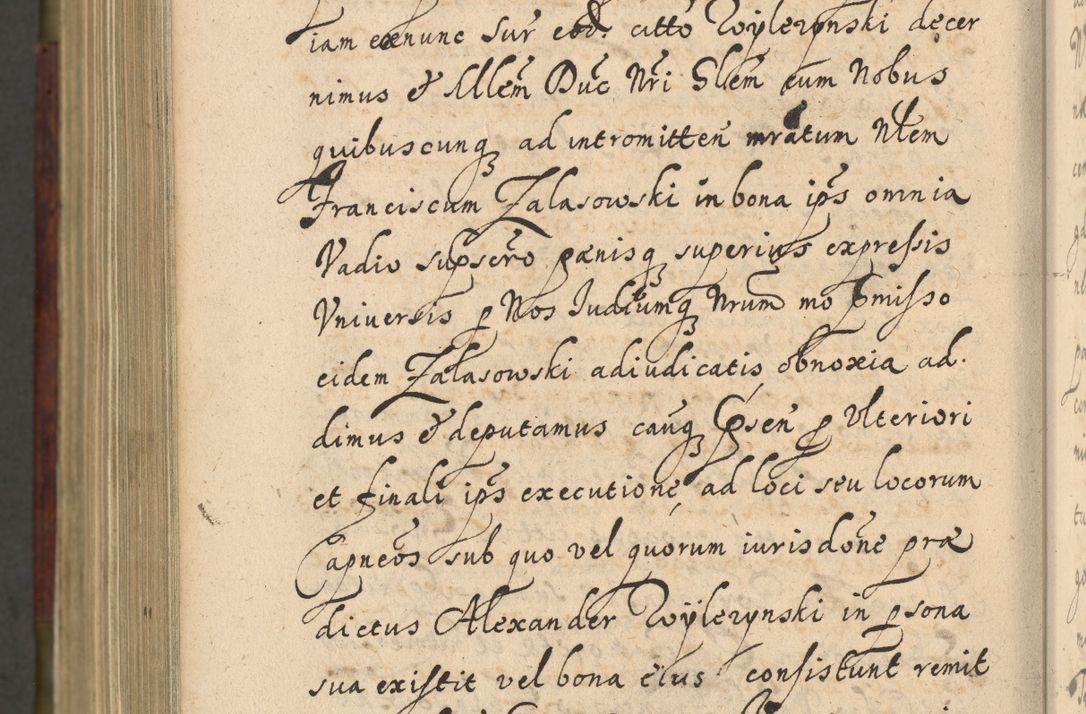 iam exnunc sur eod. citto Woÿlezynski decer
nimus & Mlem Duc Nri Glem cum Nobus
quibuscunq ad intromitten mratum Nlem
Franciscum Zalasowski in bona ips omnia
Vadio supscro pænisq superius expressis
Vniuersis p Nos Iudiumq Nrum mo pmisso
eidem Zalasowski adiudicatis obnoxia ad.
dimus & deputamus cauq psen p Vlteriori
et finali ips executione ad loci seu locorum
Capneos sub quo vel quorum iurisdone præ
dictus Alexander Woÿlezynski in psona
sua existit vel bona eius consistunt remit